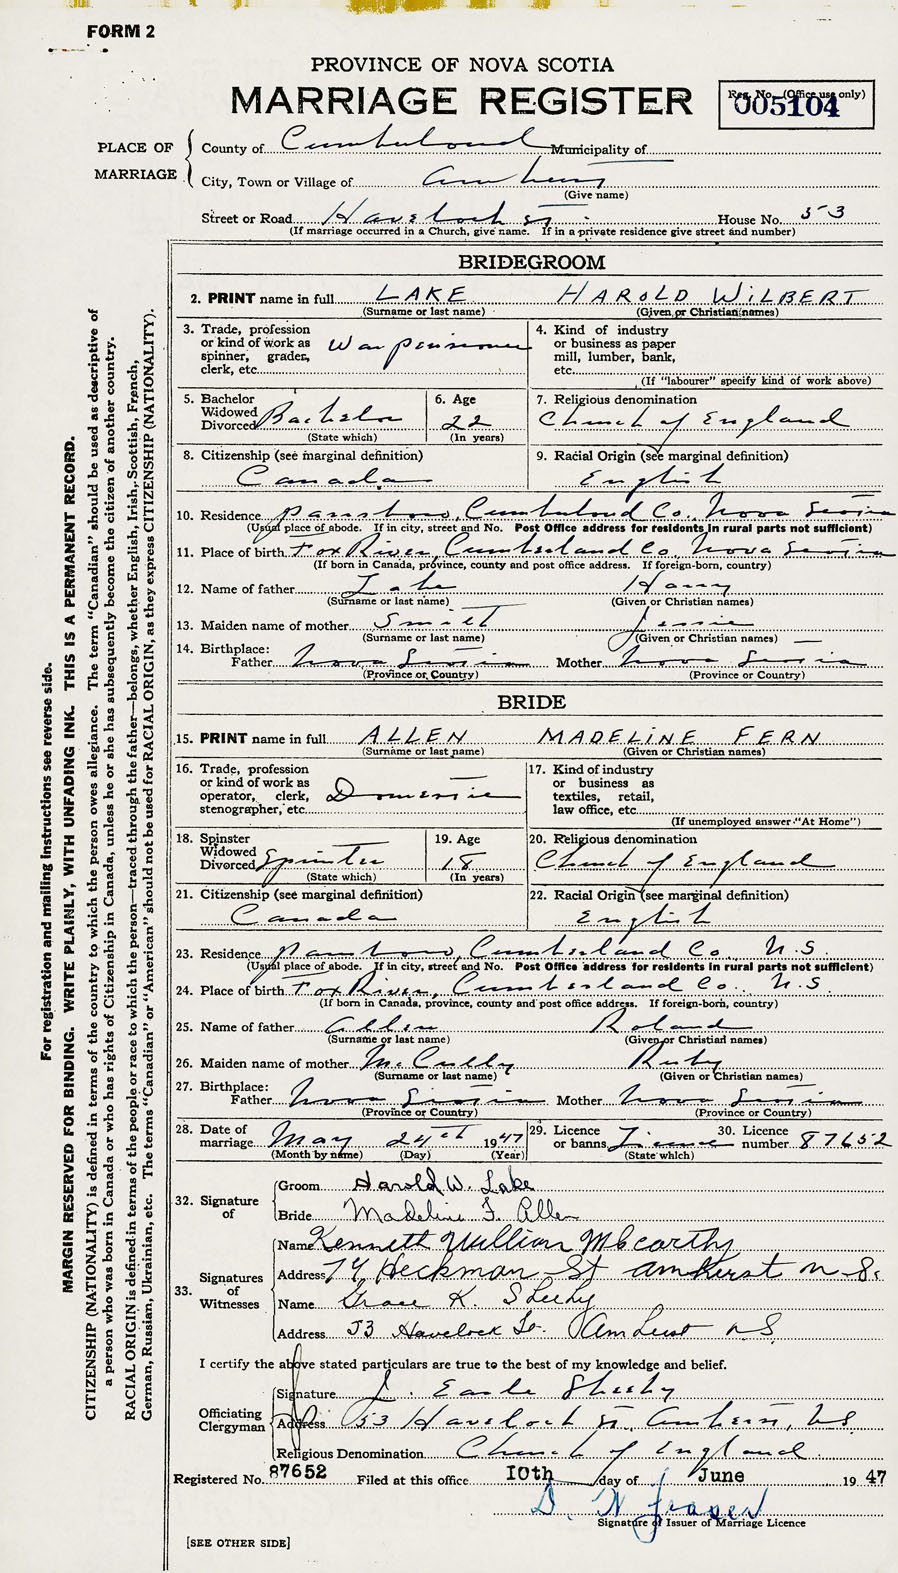 FORM 2
PROVINCE OF NOVA SCOTIA
MARRIAGE REGISTER
Reg. No. (Office use only)
005104
PLACE OF MARRIAGE
County of Cumberland Municipality of
City, Town or Village of Amherst
(Give name)
Street or Road Havelock St. House No. 53
(If marriage occurred in a Church, give name. If in a private residence give street and number)
BRIDEGROOM
2. PRINT name in full LAKE HAROLD WILBERT
(Surname or last name) (Given or Christian names)
3. Trade, profession or kind of work as spinner, grader, clerk, etc. War pensioner
4. Kind of industry or business as paper mill, lumber, bank, etc.
(If "labourer" specify kind of work above)
5. Bachelor Widowed Divorced Bachelor
(State which)
6. Age 22
(In years)
7. Religious denomination
Church of England
8. Citizenship (see marginal definition)
Canada
9. Racial Origin (see marginal definition)
English
10. Residence Parrsboro, Cumberland Co., Nova Scotia
(Usual place of abode. If in city, street and No. Post Office address for residents in rural parts not sufficient)
11. Place of birth Fox River, Cumberland Co., Nova Scotia
(If born in Canada, province, county and post office address. If foreign-born, country)
12. Name of father Lake Harry
(Surname or last name) (Given or Christian names)
13. Maiden name of mother Smith Jessie
(Surname or last name) (Given or Christian names)
14. Birthplace:
Father Nova Scotia Mother Nova Scotia
(Province or Country) (Province or Country)
BRIDE
15. PRINT name in full ALLEN MADELINE FERN
(Surname or last name) (Given or Christian names)
16. Trade, profession or kind of work as operator, clerk, stenographer, etc. Domestic
17. Kind of industry or business as textiles, retail, law office, etc.
(If unemployed answer "At Home")
18. Spinster Widowed Divorced Spinster
(State which)
19. Age 18
(In years)
20. Religious denomination
Church of England
21. Citizenship (see marginal definition)
Canada
22. Racial Origin (see marginal definition)
English
23. Residence Parrsboro, Cumberland Co., N.S.
(Usual place of abode. If in city, street and No. Post Office address for residents in rural parts not sufficient)
24. Place of birth Fox River, Cumberland Co., N.S.
(If born in Canada, province, county and post office address. If foreign-born, country)
25. Name of father Allen Roland
(Surname or last name) (Given or Christian names)
26. Maiden name of mother McCully Ruby
(Surname or last name) (Given or Christian names)
27. Birthplace:
Father Nova Scotia Mother Nova Scotia
(Province or Country) (Province or Country)
28. Date of marriage May 24th 1947
(Month by name) (Day) (Year)
29. Licence or banns License
(State which)
30. Licence number 87652
32. Signature of
Groom Harold W. Lake
Bride Madeline F. Allen
33. Signatures of Witnesses
Name Kenneth William McCarthy
Address 74 Heckman St Amherst N S.
Name Grace K. Sheehy
Address 53 Havelock St. Amherst N S
I certify the above stated particulars are true to the best of my knowledge and belief.
Officiating Clergyman
Signature J. Earle Sheehy
Address 53 Havelock St, Amherst, N S
Religious Denomination Church of England.
Registered No. 87652 Filed at this office 10th day of June 1947
D. W. Fraser
Signature of Issuer of Marriage Licence
[SEE OTHER SIDE]
For registration and mailing instructions see reverse side.
MARGIN RESERVED FOR BINDING. WRITE PLAINLY, WITH UNFADING INK. THIS IS A PERMANENT RECORD.
CITIZENSHIP (NATIONALITY) is defined in terms of the country to which the person owes allegiance. The term "Canadian" should be used as descriptive of
a person who was born in Canada or who has rights of Citizenship in Canada, unless he or she has subsequently become the citizen of another country.
RACIAL ORIGIN is defined in terms of the people or race to which the person—traced through the father—belongs, whether English, Irish, Scottish, French,
German, Russian, Ukrainian, etc. The terms "Canadian" or "American" should not be used for RACIAL ORIGIN, as they express CITIZENSHIP (NATIONALITY).